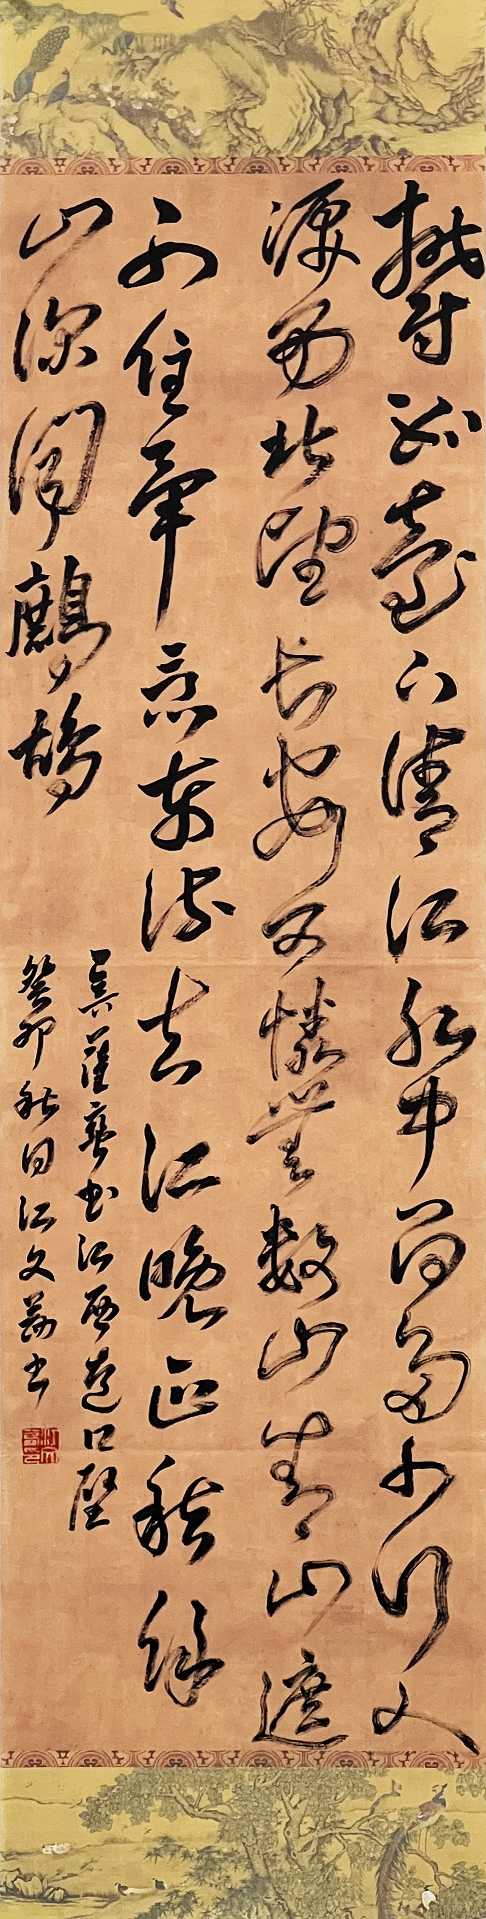 鬱孤臺下清江水中間多少行人
淚西北望長安可憐無數山青山遮
不住畢竟東流去江晚正愁餘
山深聞鷓鴣
菩薩蠻書江西造口壁
癸卯秋月江文書